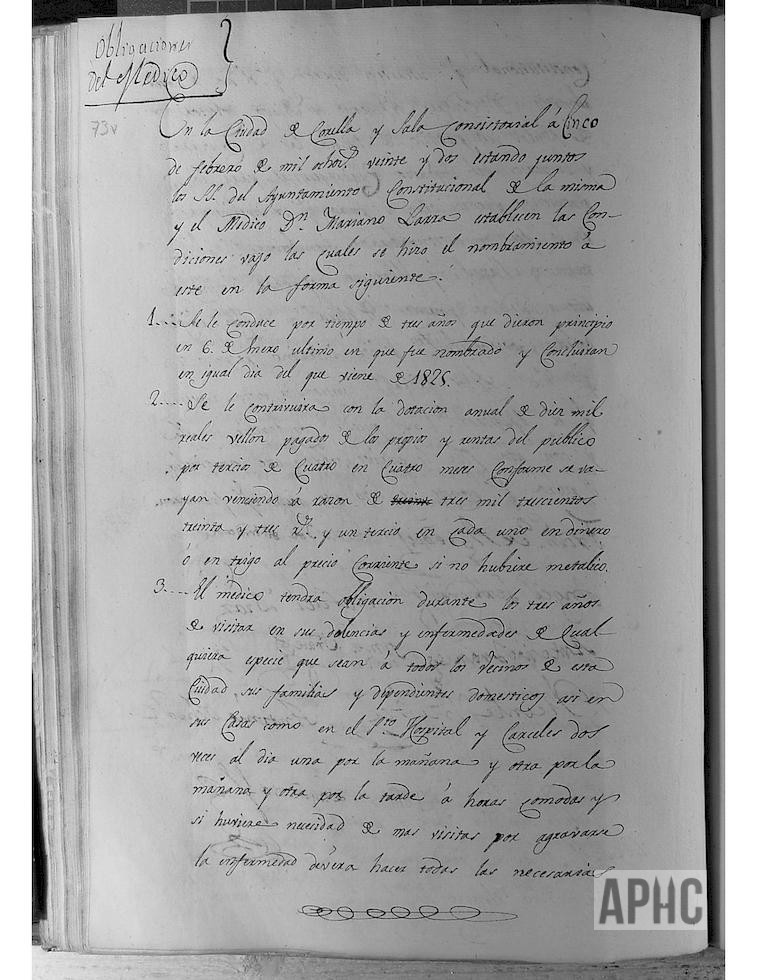 Obligaciones
del Medico
73v
En la Ciudad de Corella y Sala Consistorial á Cinco
de febrero de mil ochoz.s veinte y dos estando juntos
los SS. del Ayuntamiento Constitucional de la misma
y el Medico Dn. Mariano Larra establecen las Con-
diciones vajo las quales se hizo el nombramiento á
este en la forma siguiente.
1... Se le conduce por tiempo de tres años que dieron principio
en 6. de Enero ultimo en que fue nombrado y Concluiran
en igual dia del que viene de 1825.
2.... Se le contrivuira con la dotacion anual de diez mil
reales vellon pagados de los propios y rentas del publico
por tercios de Cuatro en Cuatro meses Conforme se va-
yan venciendo á razon de tres mil trescientos
treinta y tres r.s y un tercio en cada uno en dinero
ó en trigo al precio Corriente si no hubiere metalico.
3.... El médico tendra obligacion durante los tres años
de visitar en sus dolencias y enfermedades de Qual
quiera epecie que sean á todos los Vecinos de esta
Ciudad sus familias y dependientes domesticos asi en
sus Casas como en el S.to Hospital y Carceles dos
veces al dia una por la mañana y otra por la
mañana y otra por la tarde á horas comodas y
si huviere necesidad de mas visitas por agravarse
la enfermedad devera hacer todas las necesarias
APHC